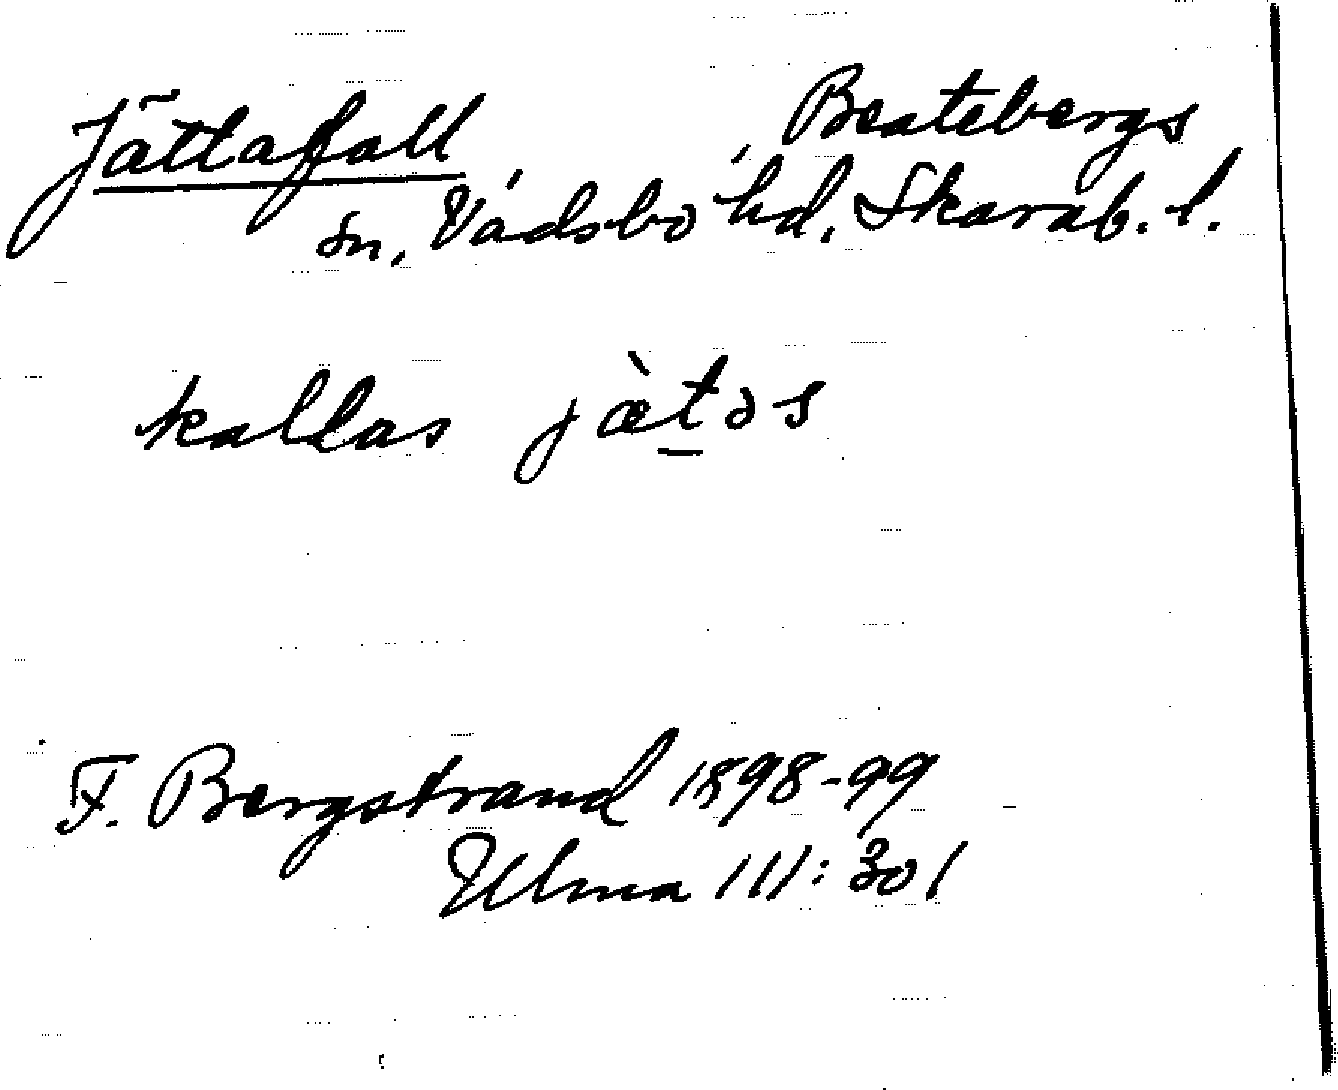 Jättafall, Beatebergs
sn, Vadsbo hd, Skarab. l.
kallas jæ̀t̲əs
F. Bergstrand 1898-99
Ulma 111:301